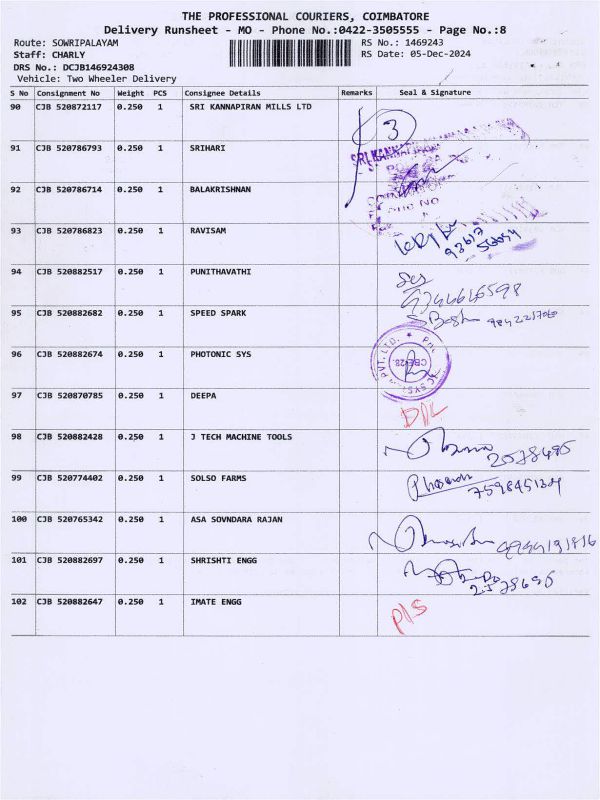 THE PROFESSIONAL COURIERS, COIMBATORE
Delivery Runsheet - MO - Phone No.:0422-3505555 - Page No.:8
Route: SOWRIPALAYAM RS No.: 1469243
Staff: CHARLY RS Date: 05-Dec-2024
DRS No.: DCJB146924308
Vehicle: Two Wheeler Delivery
S No Consignment No Weight PCS Consignee Details Remarks Seal & Signature
90 CJB 520872117 0.250 1 SRI KANNAPIRAN MILLS LTD 3
91 CJB 520786793 0.250 1 SRIHARI
92 CJB 520786714 0.250 1 BALAKRISHNAN
93 CJB 520786823 0.250 1 RAVISAM
94 CJB 520882517 0.250 1 PUNITHAVATHI
95 CJB 520882682 0.250 1 SPEED SPARK
96 CJB 520882674 0.250 1 PHOTONIC SYS
97 CJB 520870785 0.250 1 DEEPA D/L
98 CJB 520882428 0.250 1 J TECH MACHINE TOOLS 2578695
99 CJB 520774402 0.250 1 SOLSO FARMS
100 CJB 520765342 0.250 1 ASA SOVNDARA RAJAN
101 CJB 520882697 0.250 1 SHRISHTI ENGG 2578695
102 CJB 520882647 0.250 1 IMATE ENGG P/S